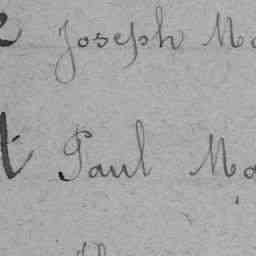 Joseph Ma
Paul Ma